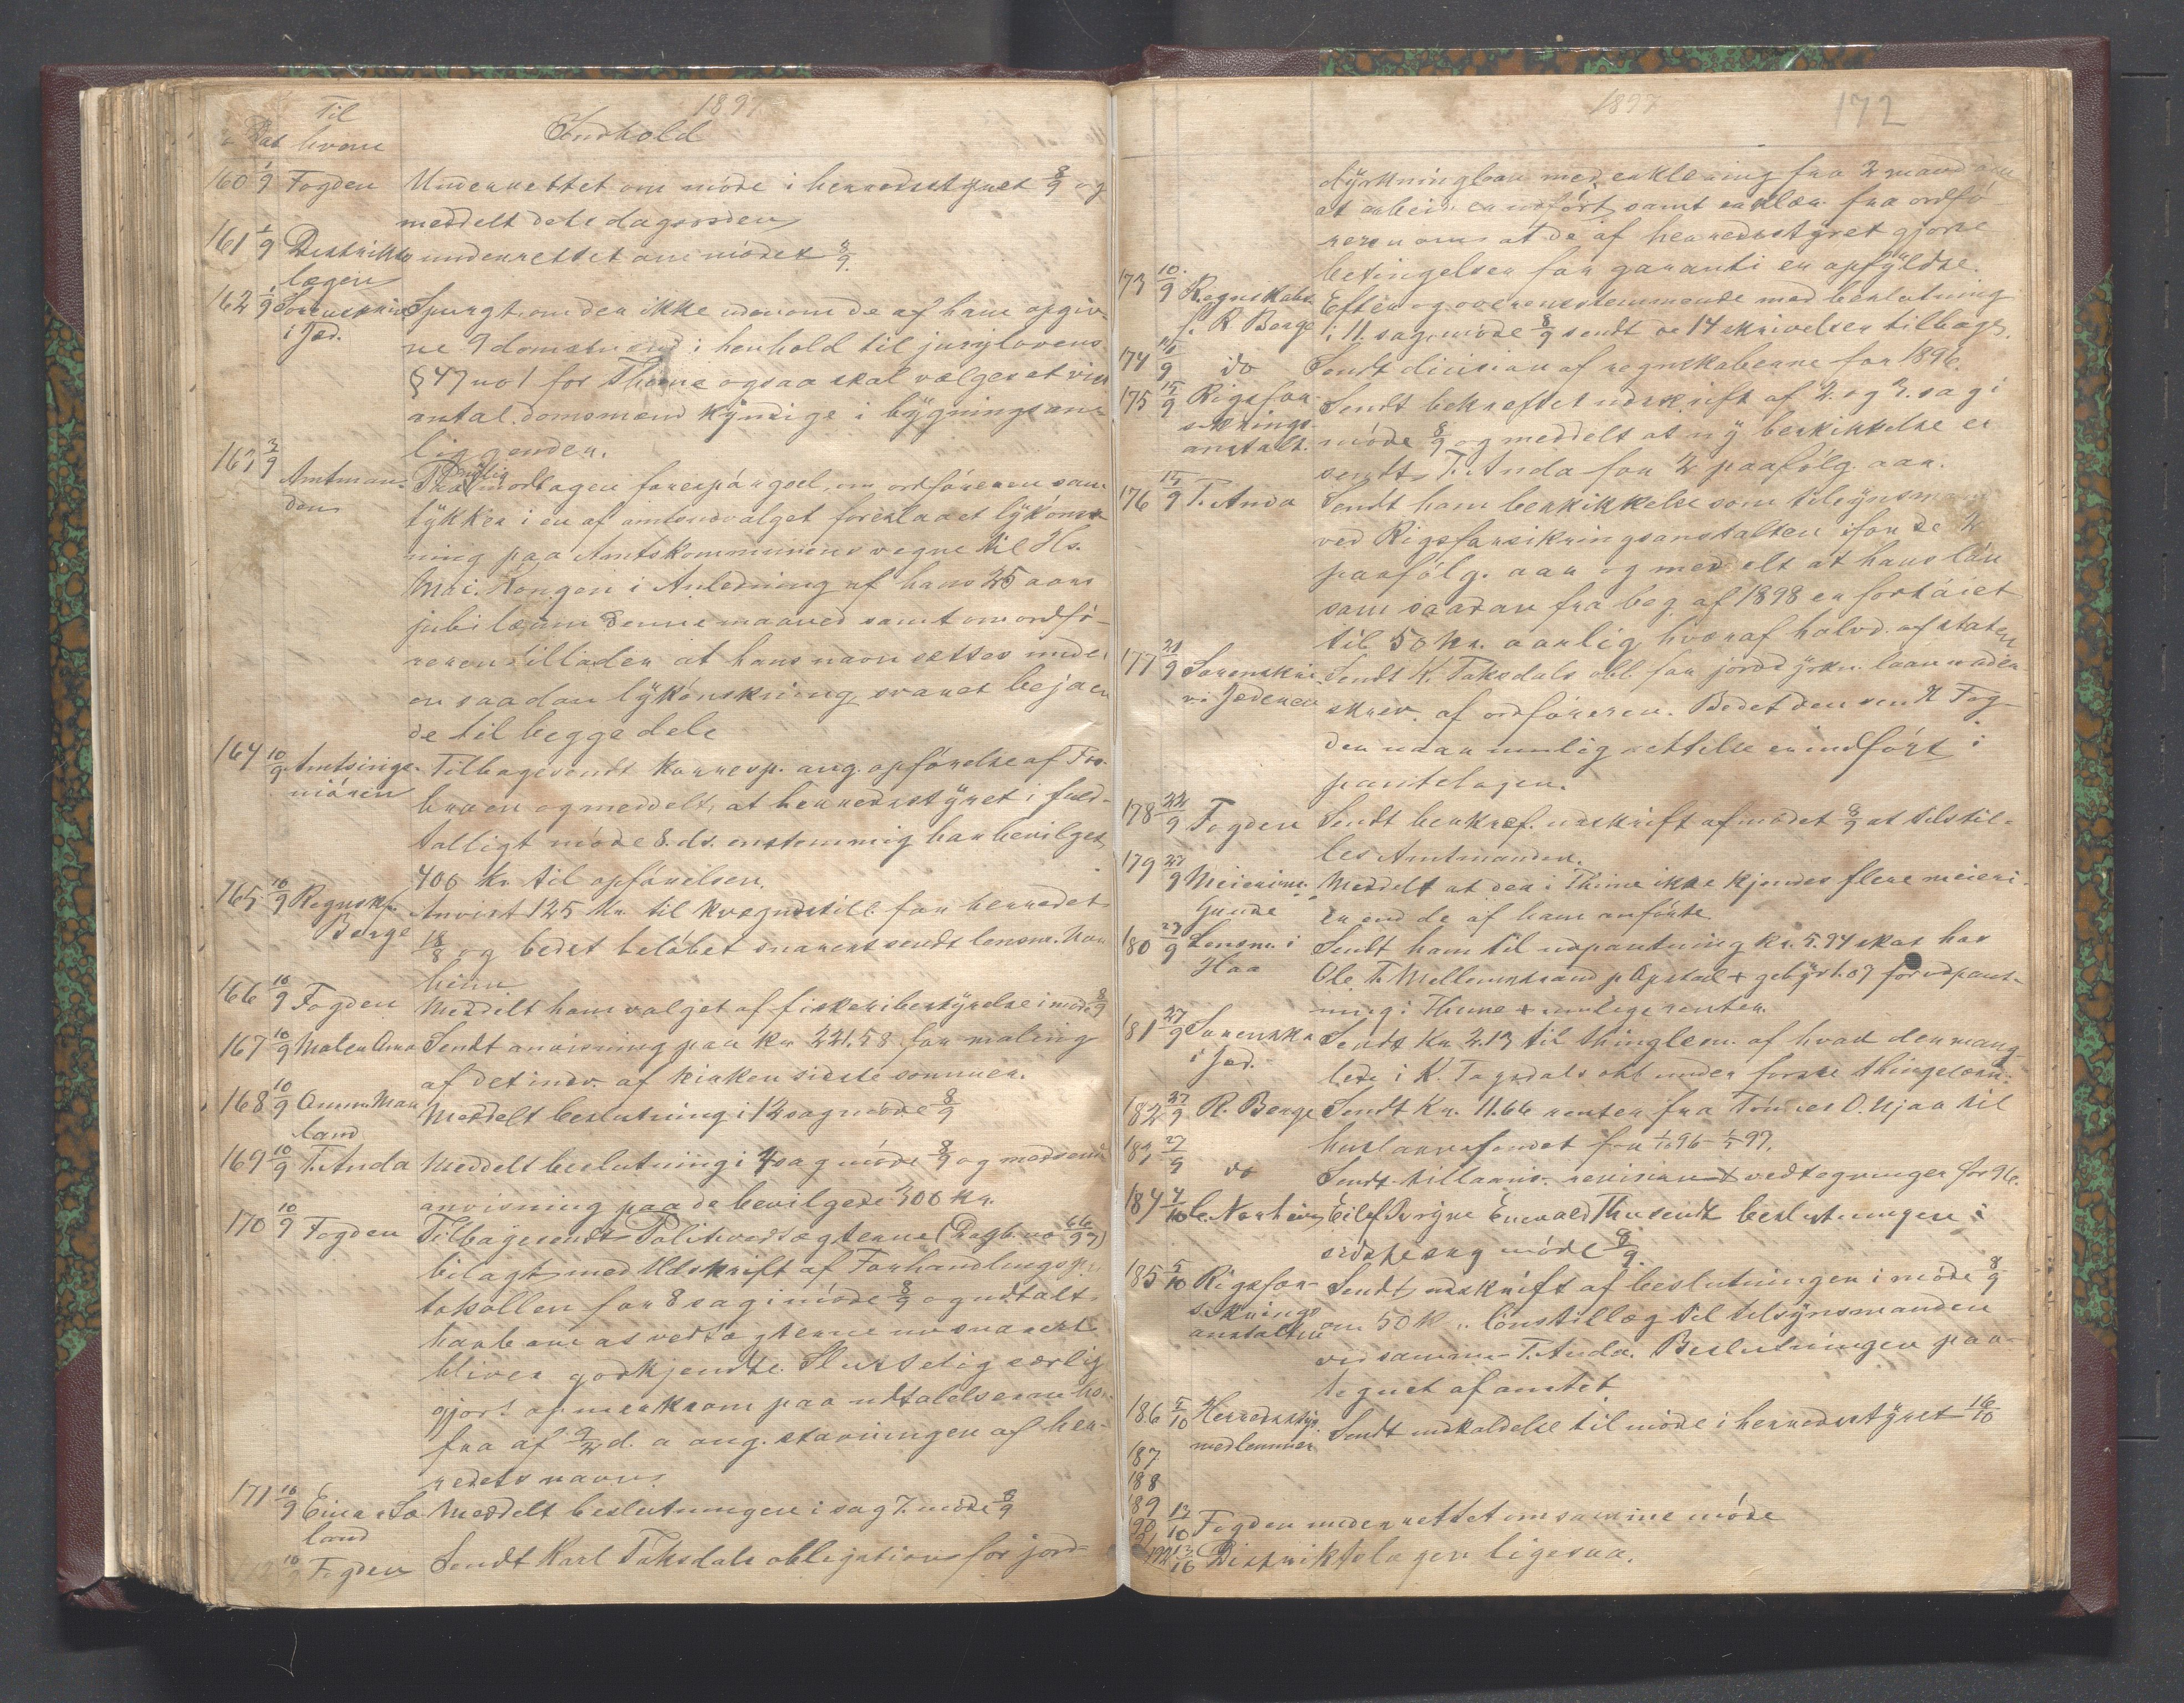 1897
Til
Dat hvem Indhold
160 1/9 Fogden Underrettet om møde i herredsstyret 8/9 og
meddelt dets dagsorden
161 1/9 Distrikts underrettet om mødet 8/9.
lægen
162 1/9 Sorenskriv Spurgt, om der ikke udenom de af ham opgiv-
i Jæd. ne 9 domsmænd i henhold til jurylovens
§ 47 no 1 for Thime ogsaa skal vælges et vist
antal domsmænd kyndige i bygningsan-
liggender.
163 3/9 Amtman- modtagen forespørgsel, om ordføreren sam
den tykker i en af amtsudvalget foreslaaet lykønsk
ning paa Amtskommunens vegne til Hs.
Maj. Kongen i Anledning af hans 25 aars
jubilæum denne maaned samt om ordfø-
reren tillader at hans navn sættes under
en saadan lykønskning, svaret bejaen
de til begge dele
164 10/9 Amtsinge- Tilbagesendt korresp. ang. opførelse af Fro-
niøren bruen og meddelt, at herredsstyret i fuld-
talligt møde 8. ds. enstemmig har bevilget
400 kr til opførelsen.
165 10/9 Regnskf. Anvist 125 kr til kvægudstill. for herredet
Berge 18/8 og bedet beløbet snarest sendt lensm. Nor
heim
166 10/9 Fogden Meddelt ham valget af fiskeribestyrelse i møde 8/9
167 10/9 Maler Sendt anvisning paa kr 221.58 for maling
af det indv. af kirken sidste sommer.
168 10/9 Meddelt beslutning i 12 sag møde 8/9
land
169 10/9 T. Anda Meddelt beslutning i 4 sag møde 8/9 og medsendt
anvisning paa de bevilgede 300 kr.
170 10/9 Fogden Tilbagesendt Politivedtægterne (Dagb. no 66/97)
bilagt med Udskrift af Forhandlingspro
tokollen for 8 sag i møde 8/9 og udtalt
haab om at vedtægterne nu snarest
bliver godkjendte. Sluttelig særlig
gjort opmerksom paa udtalelserne her
fra af 9/2 d. a. ang. stavningen af her-
redets navn.
171 10/9 Einar Sæ Meddelt beslutningen i sag 7. møde 8/9
land
172 10/9 Fogden Sendt Karl Taksdals obligation for jord-
1897 172
dyrkninglaan med erklæring fra 2 mand om
at arbeid er udført samt erklær. fra ordfø
reren om at de af herredsstyret gjorte
betingelser for garanti er opfyldte.
173 10/9 Regnskabs Efter og overensstemmende med beslutning
f. R. Berge i 11. sag, møde 8/9 sendt de 14 skrivelser tilbage.
174 10/9 do Sendt decision af regnskaberne for 1896.
175 15/9 Rigsfor- Sendt bekræftet udskrift af 2. og 3. sag i
sikrings- møde 8/9 og meddelt at ny beskikkelse er
anstalt. sendt T. Anda for 2 paafølg. aar.
176 15/9 T. Anda Sendt ham beskikkelse som tilsynsmand
ved Rigsforsikringsanstalten for de 2
paafølg. aar og meddelt at hans løn
som saadan fra beg. af 1898 er forhøiet
til 50 kr. aarlig hvoraf halvd. af staten
177 21/9 Sorenskri- Sendt K. Taksdals obl. for jorddyrkn. laan under
v. i Jæderen skrev. af ordføreren. Bedet den sendt Fog-
den naar mulig rettelse er indført i
pantebogen.
178 22/9 Fogden Sendt bekræf. udskrift af mødet 8/9 at tilstil-
les Amtmanden.
179 27/9 Meierimr. Meddelt at der i Thime ikke kjendes flere meieri-
Grude er end de af ham anførte
180 27/9 Lensm. i Sendt ham til udpantning kr. 5.94 skat hos
Haa Ole T. Mellemstrand p Opstad + gebyr 1.07 for udpant-
ning i Thime + mulige renter.
181 27/9 Sorenskr Sendt kr 2.13 til thinglesn. af hvad der mang-
i Jæd. lede i K. Tagsdals obl. under forrige thinglæsn.
182 27/9 R. Berge Sendt kr. 11.66 renter fra Tønnes O. Njaa til
huslaansfondet fra 1/10 96 - 1/5 97.
183 27/9 do Sendt revision vedtegninger for 96.
184 4/10 Norheim, Eilef Bryne Enevald Thu sendt beslutningen i
sidste sag møde 8/9.
185 5/10 Rigsfor- Sendt udskrift af beslutningen i møde 8/9
sikrings om 50 k lønstillæg til tilsynsmanden
anstalten ved samme T. Anda. Beslutningen paa-
tegnet af amtet
186 5/10 Herredssty Sendt indkaldelse til møde i herredsstyret 16/10
medlemmer
187
188
189
190 13/10 Fogden underrettet om samme møde
192 13/10 Distriktslægen ligesaa.